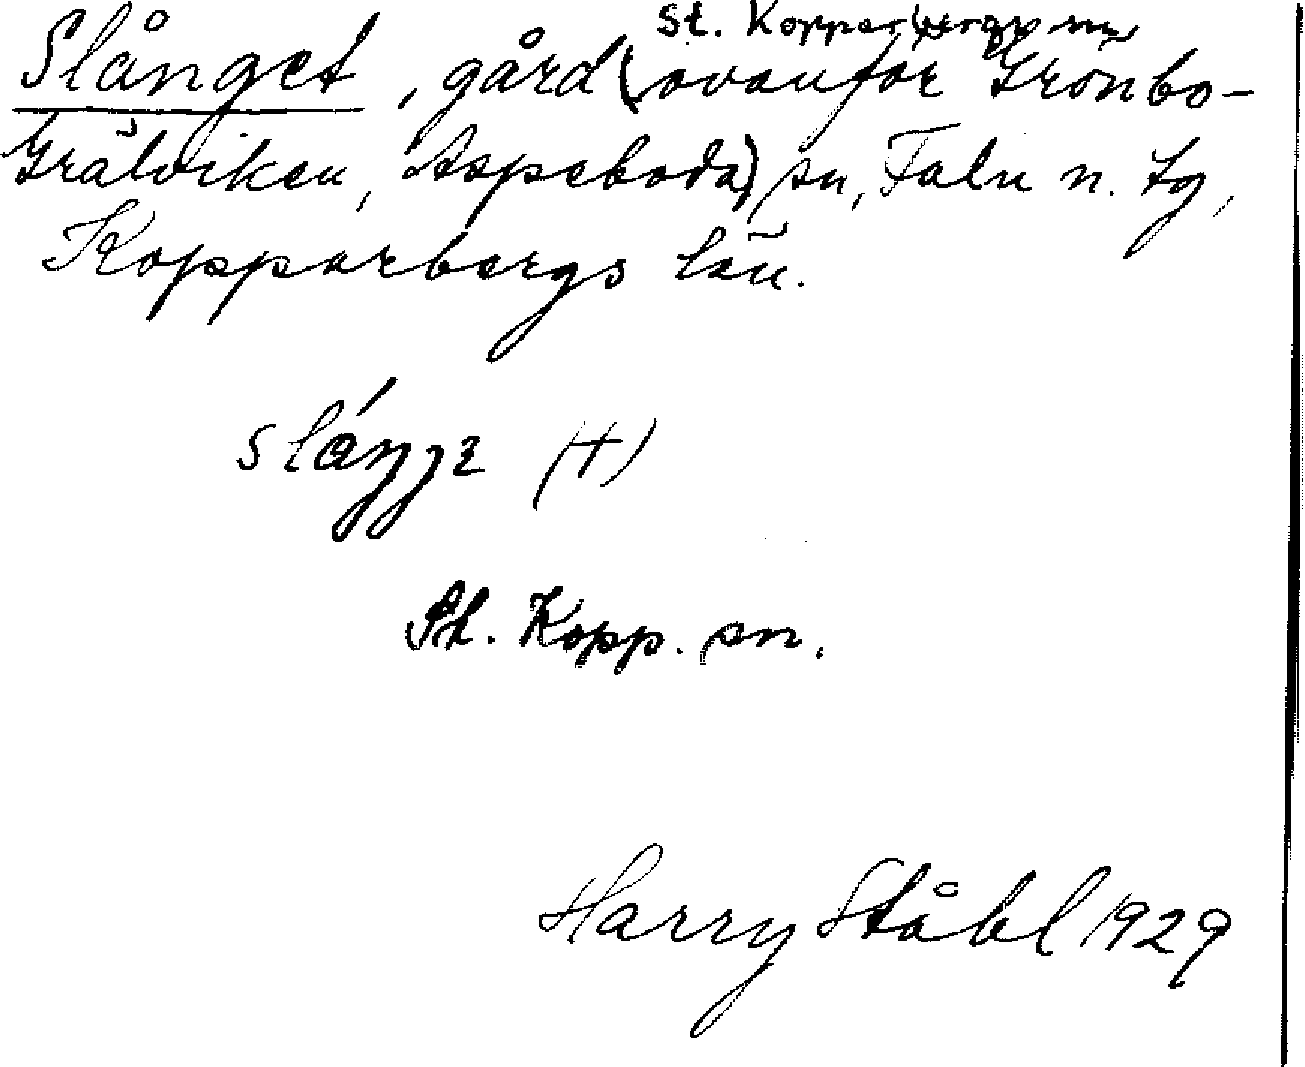 St. Kopparbergs sn
Slånget, gård (ovanför Grönbo-
Grälviken, Aspeboda) sn, Falu n. tg,
Kopparbergs län.
(+)
St. Kopp. sn.
Harry Ståhl 1929